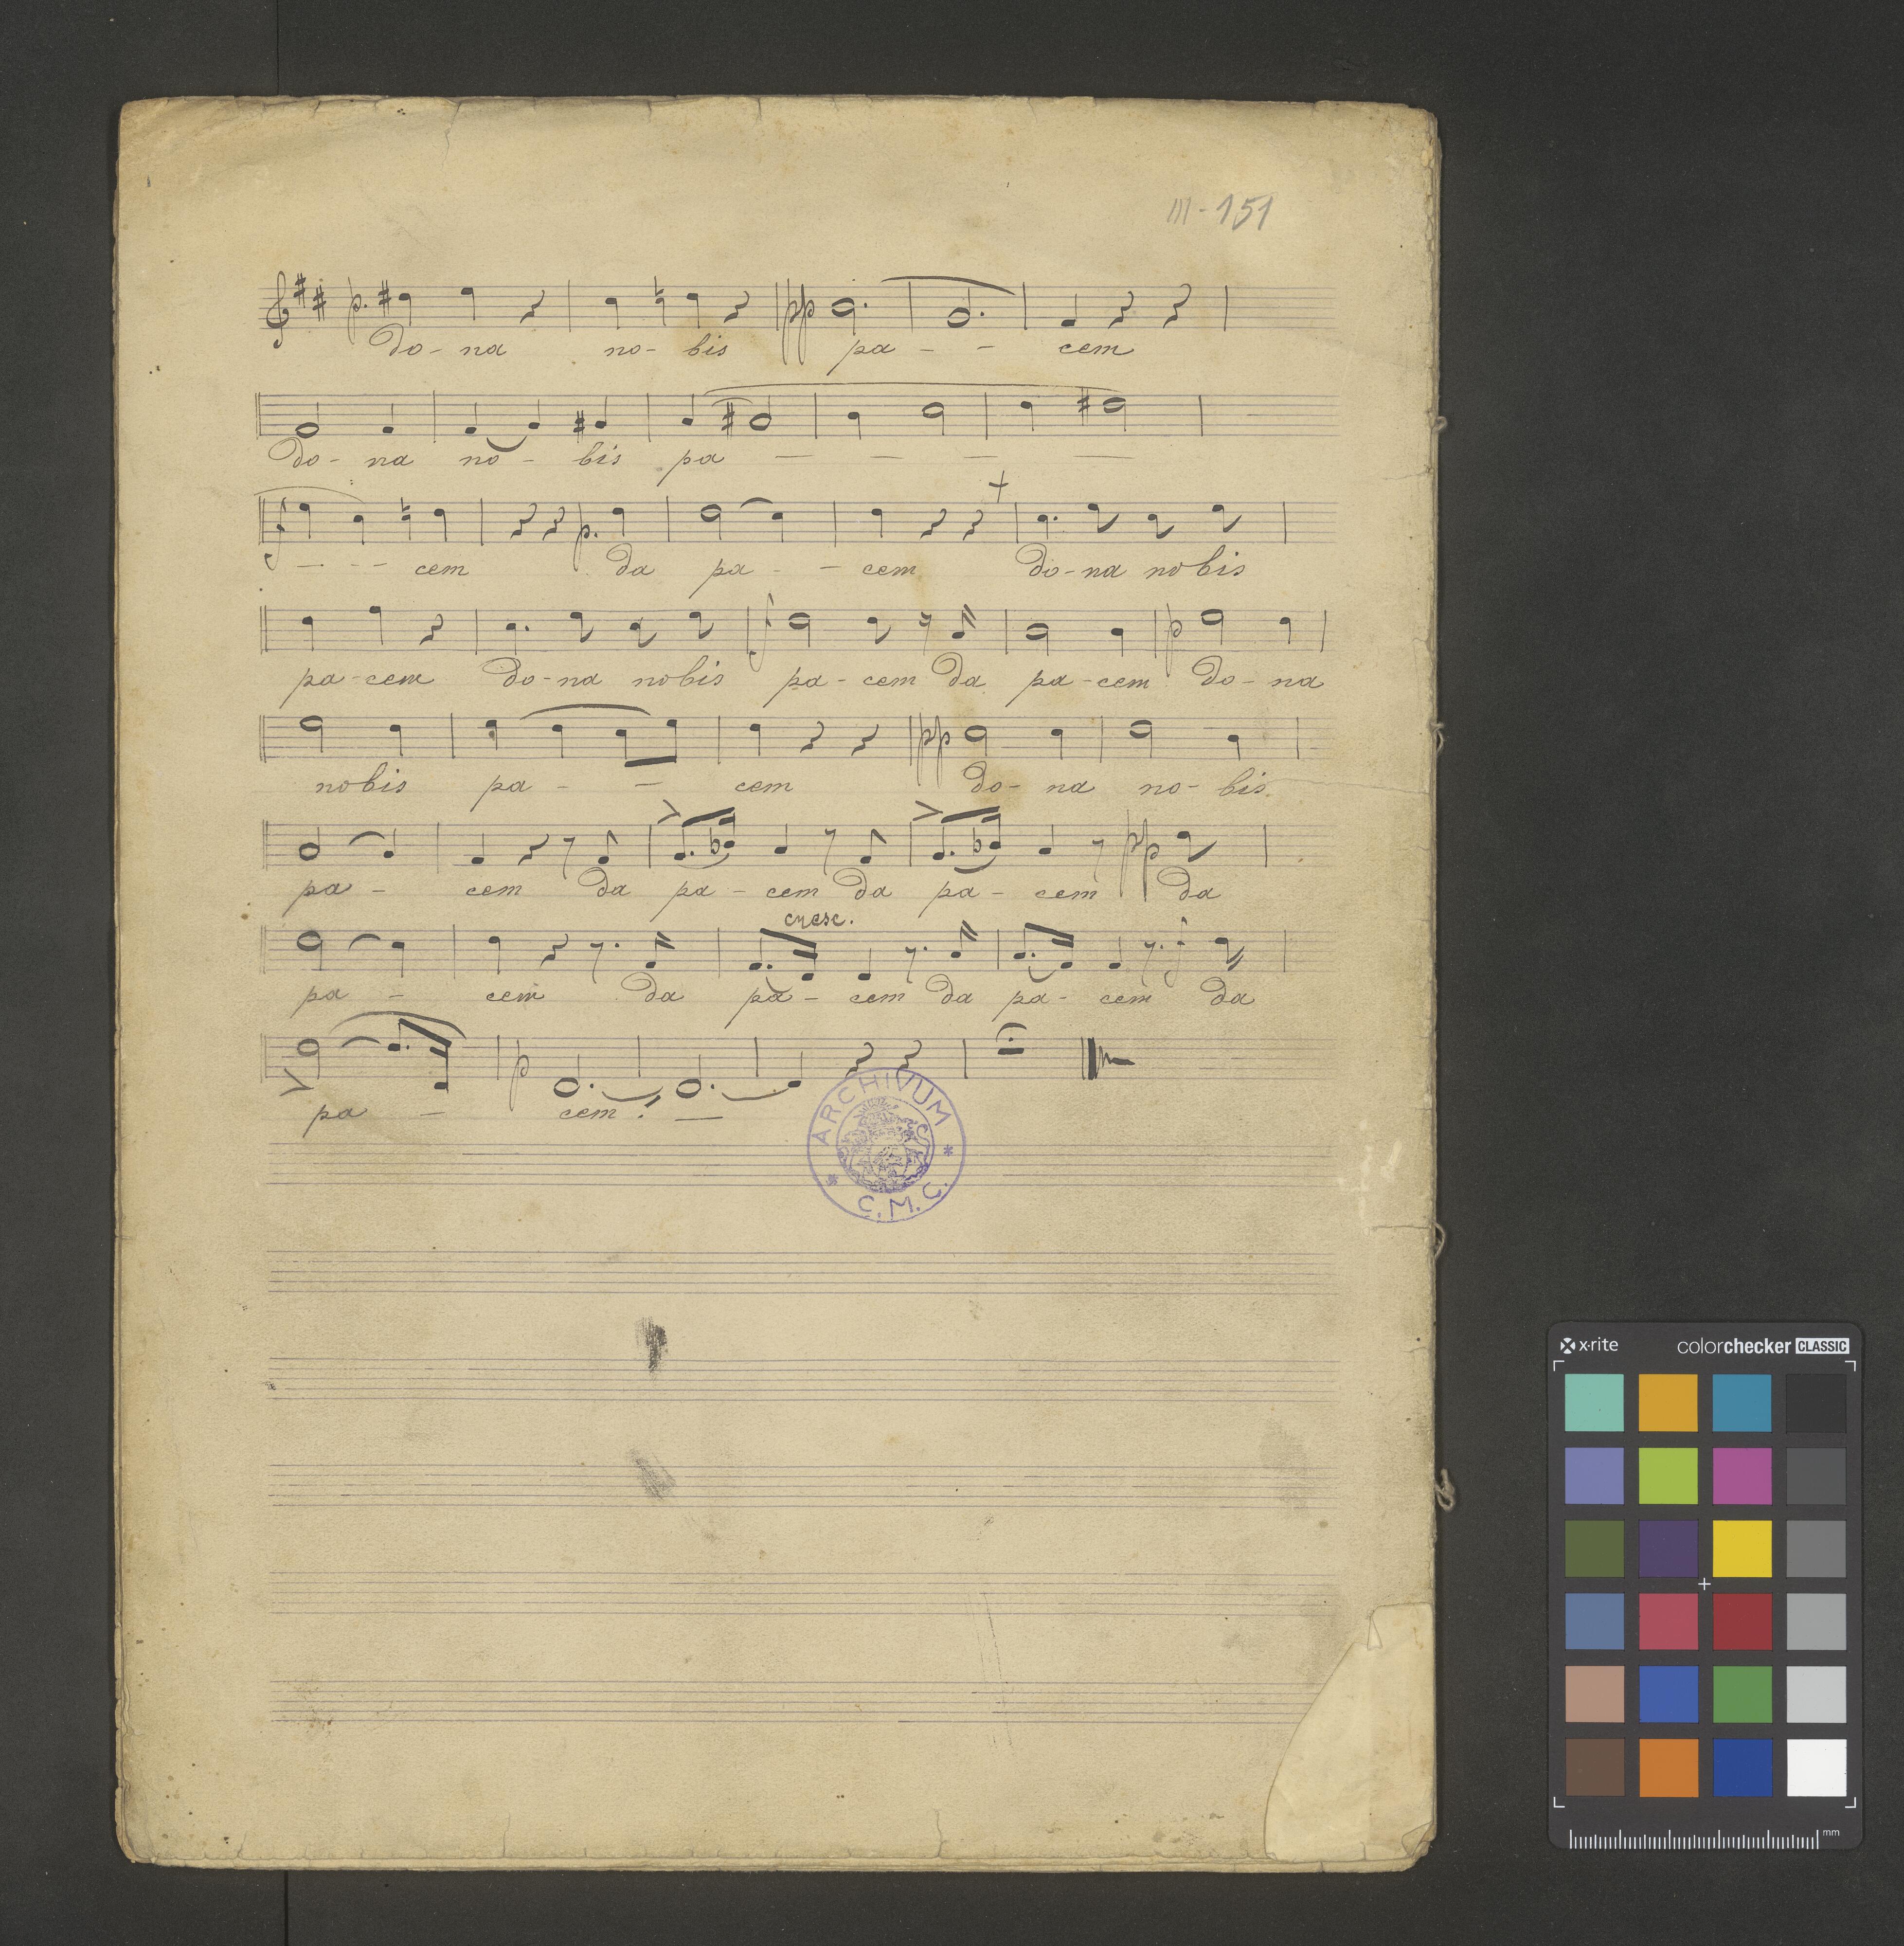 III-151
p. pp
do - na no - bis pa - - cem
do - na no - bis pa — — — —
f p.
— - - cem da pa - - cem do - na nobis
f p
pa - cem do - na nobis pa - cem da pa - cem do - na
pp
nobis pa - — cem do - na no - bis
pp
pa - cem da pa - cem da pa - cem da
cresc.
f
pa - cem da pa - cem da pa - cem da
p
pa - cem. —
ARCHIVUM
C.M.C.
x-rite colorchecker CLASSIC
mm